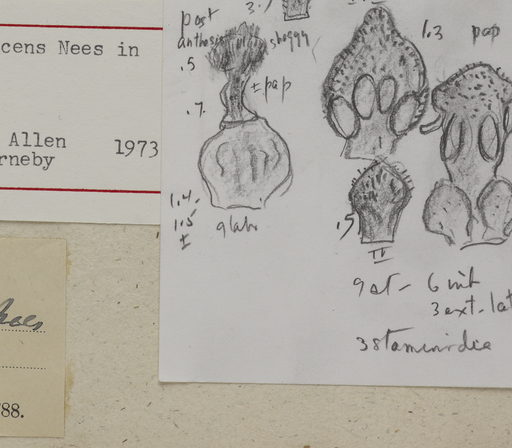 cens Nees in
Allen
rneby 1973
88.
3.7
post
anthesis shaggy
.5
± pap
.7
1.4-
1.5
±
glabr
1.3 pap
.5
IV
9 st - 6 int
3 ext-lat
3 staminodia